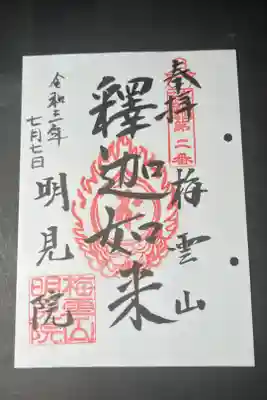 奉拝
第二番
梅雲山
釋迦如来
明見院
令和三年
七月七日
梅雲山
明見院